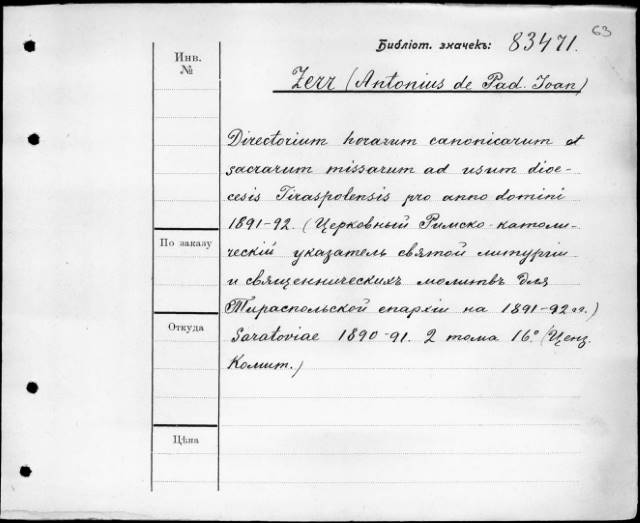 63
Библіот. значекъ: 83471.
Инв.
№
Zerr (Antonius de Pad. Ioan)
Directorium horarum canonicarum et
sacrarum missarum ad usum dioe-
cesis Tiraspolensis pro anno domini
1891-92. (Церковный Римско-католи-
По заказу
ческій указатель святой литургіи
и священническихъ молитвъ для
Тираспольской епархіи на 1891-92 гг.)
Откуда
Saratoviae 1890-91. 2 тома 16.° (Ценз.
Комит.)
Цѣна